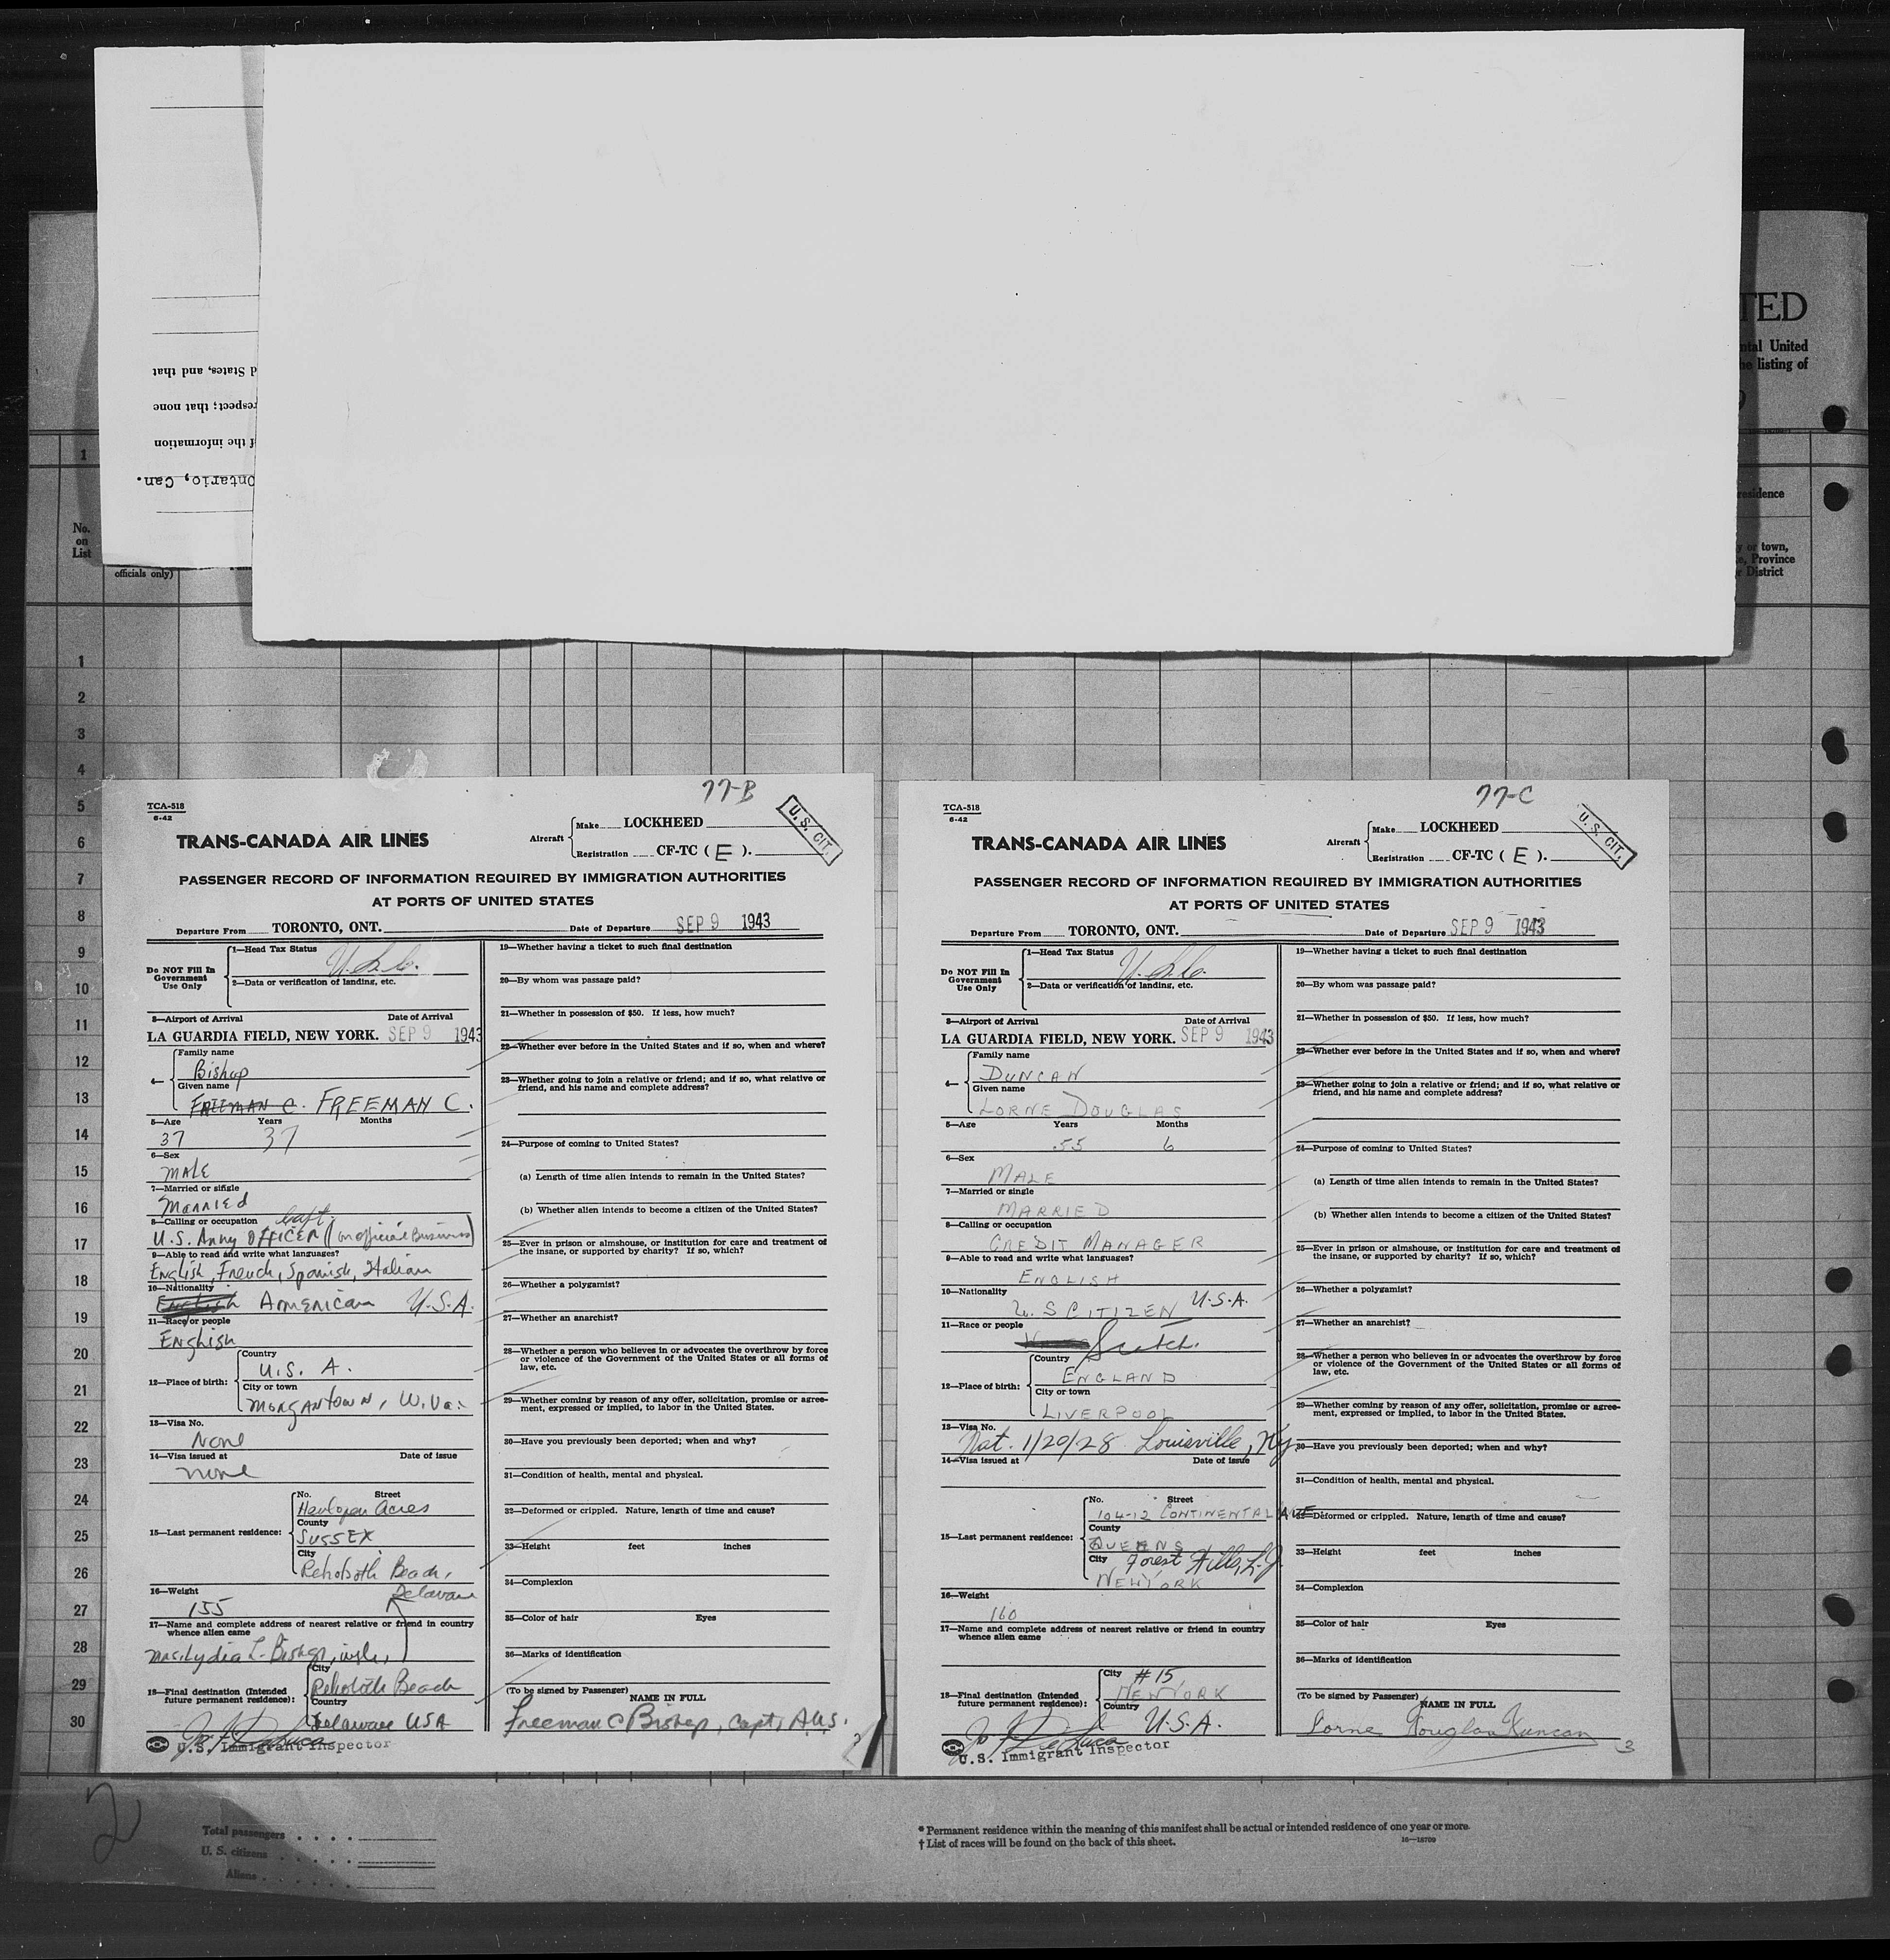 TED
ntal United
he listing of
d States, and that
respect; that none
f the information
Ontario, Can.
1
No.
on
List
officials only)
residence
y or town,
e, Province
r District
1
2
3
4
5
6
7
8
9
10
11
12
13
14
15
16
17
18
19
20
21
22
23
24
25
26
27
28
29
30
77-B
TCA-518
6-42
U. S. CIT.
TRANS-CANADA AIR LINES
Aircraft
Make LOCKHEED
Registration CF-TC ( E ).
PASSENGER RECORD OF INFORMATION REQUIRED BY IMMIGRATION AUTHORITIES
AT PORTS OF UNITED STATES
Departure From TORONTO, ONT. Date of Departure SEP 9 1943
Do NOT Fill In
Government
Use Only
1—Head Tax Status
U.S.C.
2—Data or verification of landing, etc.
3—Airport of Arrival Date of Arrival
LA GUARDIA FIELD, NEW YORK. SEP 9 1943
4—
Family name
Bishop
Given name
FREEMAN C. FREEMAN C.
5—Age Years Months
37 37
6—Sex
MALE
7—Married or single
Married
8—Calling or occupation Capt.
U.S. Army OFFICER (on official Business)
9—Able to read and write what languages?
English, French, Spanish, Italian
10—Nationality
English American U.S.A.
11—Race or people
English
12—Place of birth:
Country
U.S. A.
City or town
Morgantown, W.Va.
13—Visa No.
None
14—Visa issued at Date of issue
none
15—Last permanent residence:
No. Street
Henlopen Acres
County
SUSSEX
City
Rehoboth Beach,
Delaware
16—Weight
155
17—Name and complete address of nearest relative or friend in country
whence alien came
Mrs. Lydia L. Bishop, wife,
18—Final destination (Intended
future permanent residence):
City
Rehoboth Beach
Country
Delaware USA
U.S. Immigrant Inspector
19—Whether having a ticket to such final destination
20—By whom was passage paid?
21—Whether in possession of $50. If less, how much?
22—Whether ever before in the United States and if so, when and where?
23—Whether going to join a relative or friend; and if so, what relative or
friend, and his name and complete address?
24—Purpose of coming to United States?
(a) Length of time alien intends to remain in the United States?
(b) Whether alien intends to become a citizen of the United States?
25—Ever in prison or almshouse, or institution for care and treatment of
the insane, or supported by charity? If so, which?
26—Whether a polygamist?
27—Whether an anarchist?
28—Whether a person who believes in or advocates the overthrow by force
or violence of the Government of the United States or all forms of
law, etc.
29—Whether coming by reason of any offer, solicitation, promise or agree-
ment, expressed or implied, to labor in the United States.
30—Have you previously been deported; when and why?
31—Condition of health, mental and physical.
32—Deformed or crippled. Nature, length of time and cause?
33—Height feet inches
34—Complexion
35—Color of hair Eyes
36—Marks of identification
(To be signed by Passenger)
NAME IN FULL
Freeman C Bishop, Capt, A.U.S.
2
77-C
TCA-518
6-42
U. S. CIT.
TRANS-CANADA AIR LINES
Aircraft
Make LOCKHEED
Registration CF-TC ( E ).
PASSENGER RECORD OF INFORMATION REQUIRED BY IMMIGRATION AUTHORITIES
AT PORTS OF UNITED STATES
Departure From TORONTO, ONT. Date of Departure SEP 9 1943
Do NOT Fill In
Government
Use Only
1—Head Tax Status
U.S.C.
2—Data or verification of landing, etc.
3—Airport of Arrival Date of Arrival
LA GUARDIA FIELD, NEW YORK. SEP 9 1943
4—
Family name
DUNCAN
Given name
LORNE DOUGLAS
5—Age Years Months
55 6
6—Sex
MALE
7—Married or single
MARRIED
8—Calling or occupation
CREDIT MANAGER
9—Able to read and write what languages?
ENGLISH
10—Nationality
U. S CITIZEN U.S.A.
11—Race or people
Scotch.
12—Place of birth:
Country
ENGLAND
City or town
LIVERPOOL
13—Visa No.
Nat. 1/20/28 Louisville, Ky.
14—Visa issued at Date of issue
15—Last permanent residence:
No. Street
104-12 CONTINENTAL AVE
County
QUEENS
City Forest Hills, L.I.
NEW YORK
16—Weight
160
17—Name and complete address of nearest relative or friend in country
whence alien came
18—Final destination (Intended
future permanent residence):
City #15
NEW YORK
Country
U.S.A.
U.S. Immigrant Inspector
19—Whether having a ticket to such final destination
20—By whom was passage paid?
21—Whether in possession of $50. If less, how much?
22—Whether ever before in the United States and if so, when and where?
23—Whether going to join a relative or friend; and if so, what relative or
friend, and his name and complete address?
24—Purpose of coming to United States?
(a) Length of time alien intends to remain in the United States?
(b) Whether alien intends to become a citizen of the United States?
25—Ever in prison or almshouse, or institution for care and treatment of
the insane, or supported by charity? If so, which?
26—Whether a polygamist?
27—Whether an anarchist?
28—Whether a person who believes in or advocates the overthrow by force
or violence of the Government of the United States or all forms of
law, etc.
29—Whether coming by reason of any offer, solicitation, promise or agree-
ment, expressed or implied, to labor in the United States.
30—Have you previously been deported; when and why?
31—Condition of health, mental and physical.
32—Deformed or crippled. Nature, length of time and cause?
33—Height feet inches
34—Complexion
35—Color of hair Eyes
36—Marks of identification
(To be signed by Passenger)
NAME IN FULL
Lorne Douglas Duncan
3
2
Total passengers
U. S. citizens
Aliens
* Permanent residence within the meaning of this manifest shall be actual or intended residence of one year or more.
† List of races will be found on the back of this sheet.
16—18709